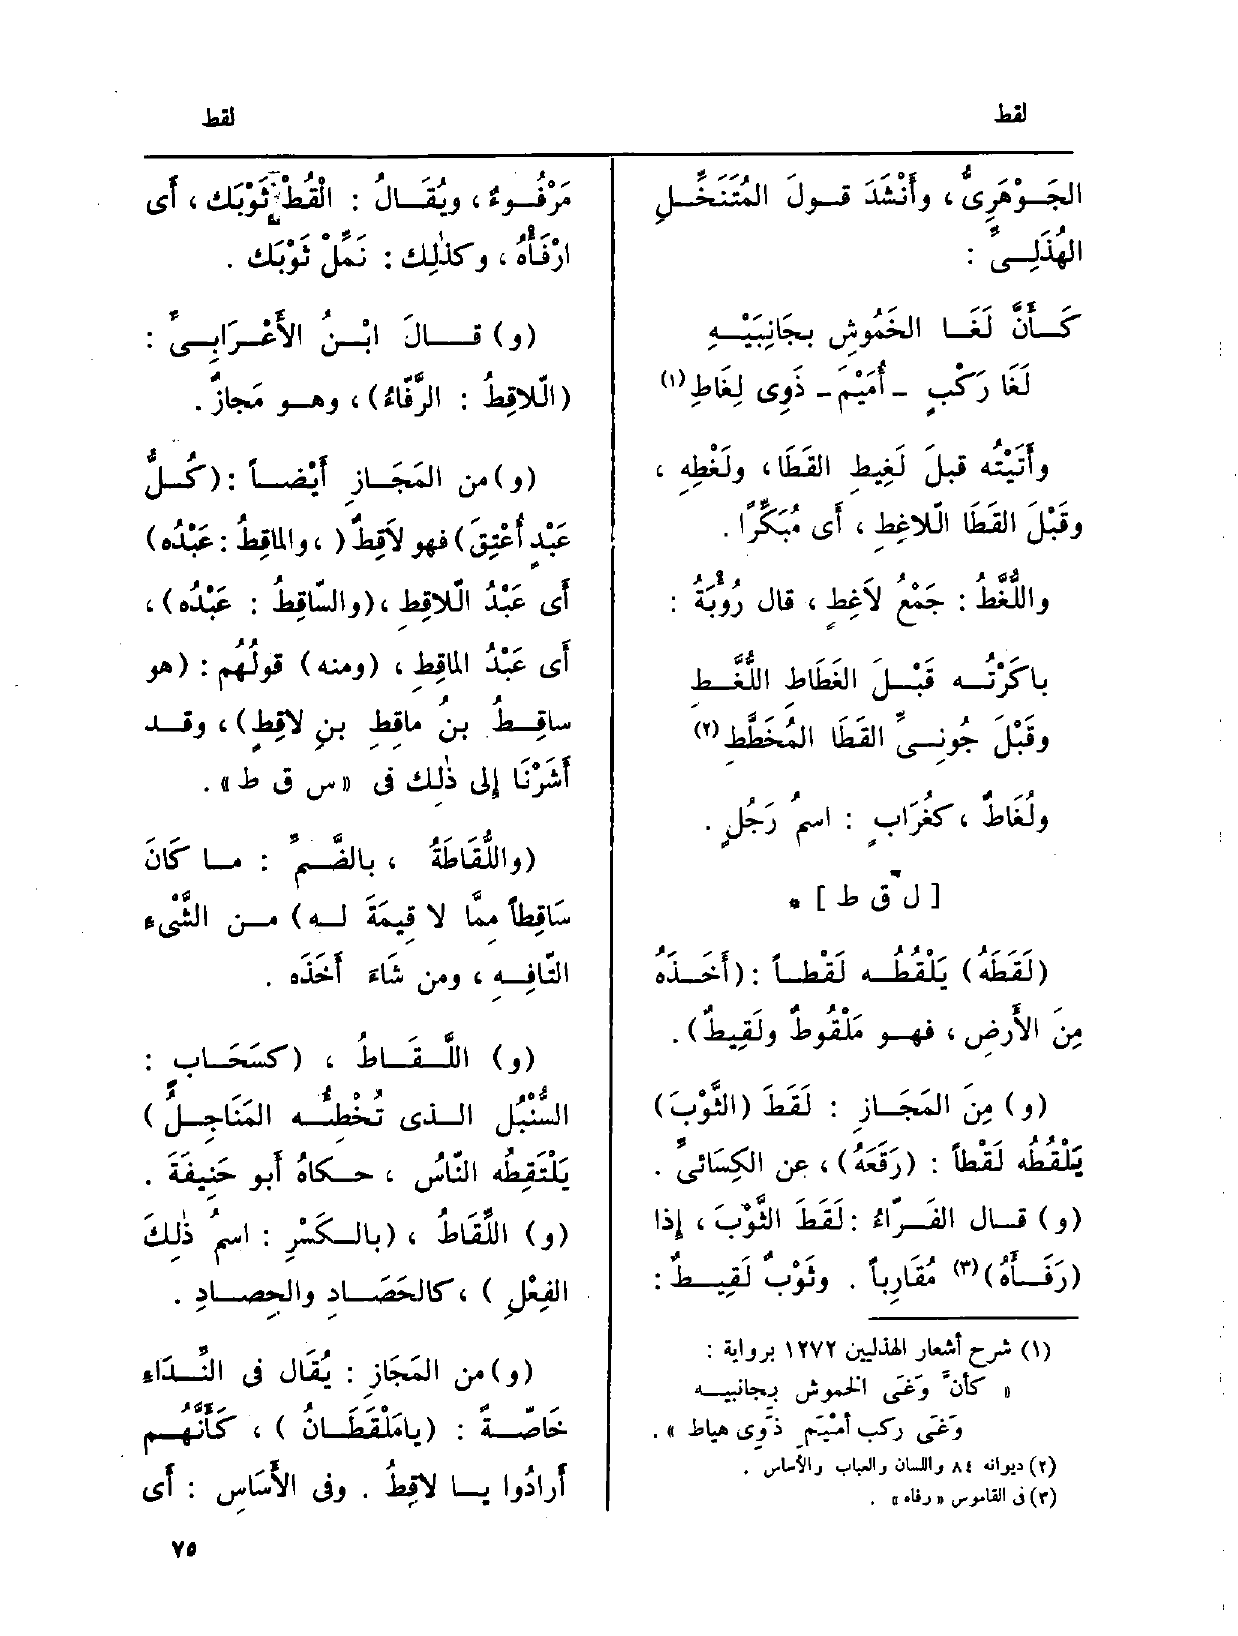 لقط
لقط
الجَوْهَرِىُّ ، وأَنْشَدَ قولَ المُتَنَخِّلِ
الهُذَلِىِّ :
كَأَنَّ لَغَا الخَمُوشِ بجَانِبَيْهِ
لَغَا رَكْبٍ - أُمَيْمَ - ذَوِى لِغَاطِ (١)
وأَتَيْتُه قبلَ لَغِيطِ القَطَا، ولَغْطِه ،
وقَبْلَ القَطَا الّلاغِطِ ، أَى مُبَكِّرًا .
واللُّغَّطُ : جَمْعُ لاَغِطٍ ، قال رُؤْبَةُ :
باكَرْتُه قَبْلَ الغَطَاطِ اللُّغَّطِ
وقَبْلَ جُونِىِّ القَطَا المُخَطَّطِ (٢)
ولُغَاطٌ ، كغُرَابٍ : اسمُ رَجُلٍ .
[ ل ق ط ] *
(لَقَطَهُ) يَلْقُطُه لَقْطاً : (أَخَذَهُ
مِنَ الأَرضِ ، فهو مَلْقُوطٌ ولَقِيطٌ).
(و) مِنَ المَجَازِ : لَقَطَ (الثَّوْبَ)
يَلْقُطُه لَقْطاً : (رَقَعَهُ) ، عن الكِسَائىِّ .
(و) قال الفَرّاءُ : لَقَطَ الثَّوْبَ ، إِذا
(رَفَأَهُ) (٣) مُقَارِباً . وثَوْبٌ لَقِيطٌ :
(١) شرح أشعار الهذليين ١٢٧٢ برواية :
« كأنّ وَغَى الخموش بجانبيه
وَغَى ركب أُمَيْمَ ذوى هياط » .
(٢) ديوانه ٨٤ واللسان والعباب والأساس .
(٣) فى القاموس « رفاه » .
مَرْفُوءٌ ، ويُقَالُ : الْقُطْ ثَوْبَك ، أَى
ارْفَأْهُ ، وكذٰلِك : نَمِّلْ ثَوْبَك .
(و) قالَ ابْنُ الأَعْرَابِىِّ :
(الّلاقِطُ : الرَّفّاءُ) ، وهو مَجازٌ .
(و) من المَجَازِ أَيْضاً : (كُلُّ
عَبْدٍ أُعْتِقَ) فهو لاَقِطٌ ( ، والماقِطُ : عَبْدُه)
أَى عَبْدُ الّلاقِطِ ، (والسّاقِطُ : عَبْدُه) ،
أَى عَبْدُ الماقِطِ ، (ومنه) قولُهُم : (هو
ساقِطُ بنُ ماقِطِ بنِ لاقِطٍ) ، وقد
أَشَرْنَا إِلى ذٰلِك فى « س ق ط » .
(واللُّقَاطَةُ ، بالضَّمِّ : ما كَانَ
سَاقِطاً مِمَّا لا قِيمَةَ له) من الشَّىءِ
التّافِهِ ، ومن شَاءَ أَخَذَه .
(و) اللَّقَاطُ ، (كسَحَابٍ :
السُّنْبُل الذى تُخْطِئُه المَنَاجِلُ )
يَلْتَقِطُه النّاسُ ، حكاهُ أبو حَنِيفَةَ .
(و) اللِّقَاطُ ، (بالكَسْرِ : اسمُ ذٰلِكَ
الفِعْلِ ) ، كالحَصَادِ والحِصادِ .
(و) من المَجَازِ : يُقَال فى النِّدَاءِ
خَاصَّةً : (يامَلْقَطَانُ ) ، كَأَنَّهُم
أَرادُوا يا لاقِطُ . وفى الأَسَاسِ : أَى
٧٥